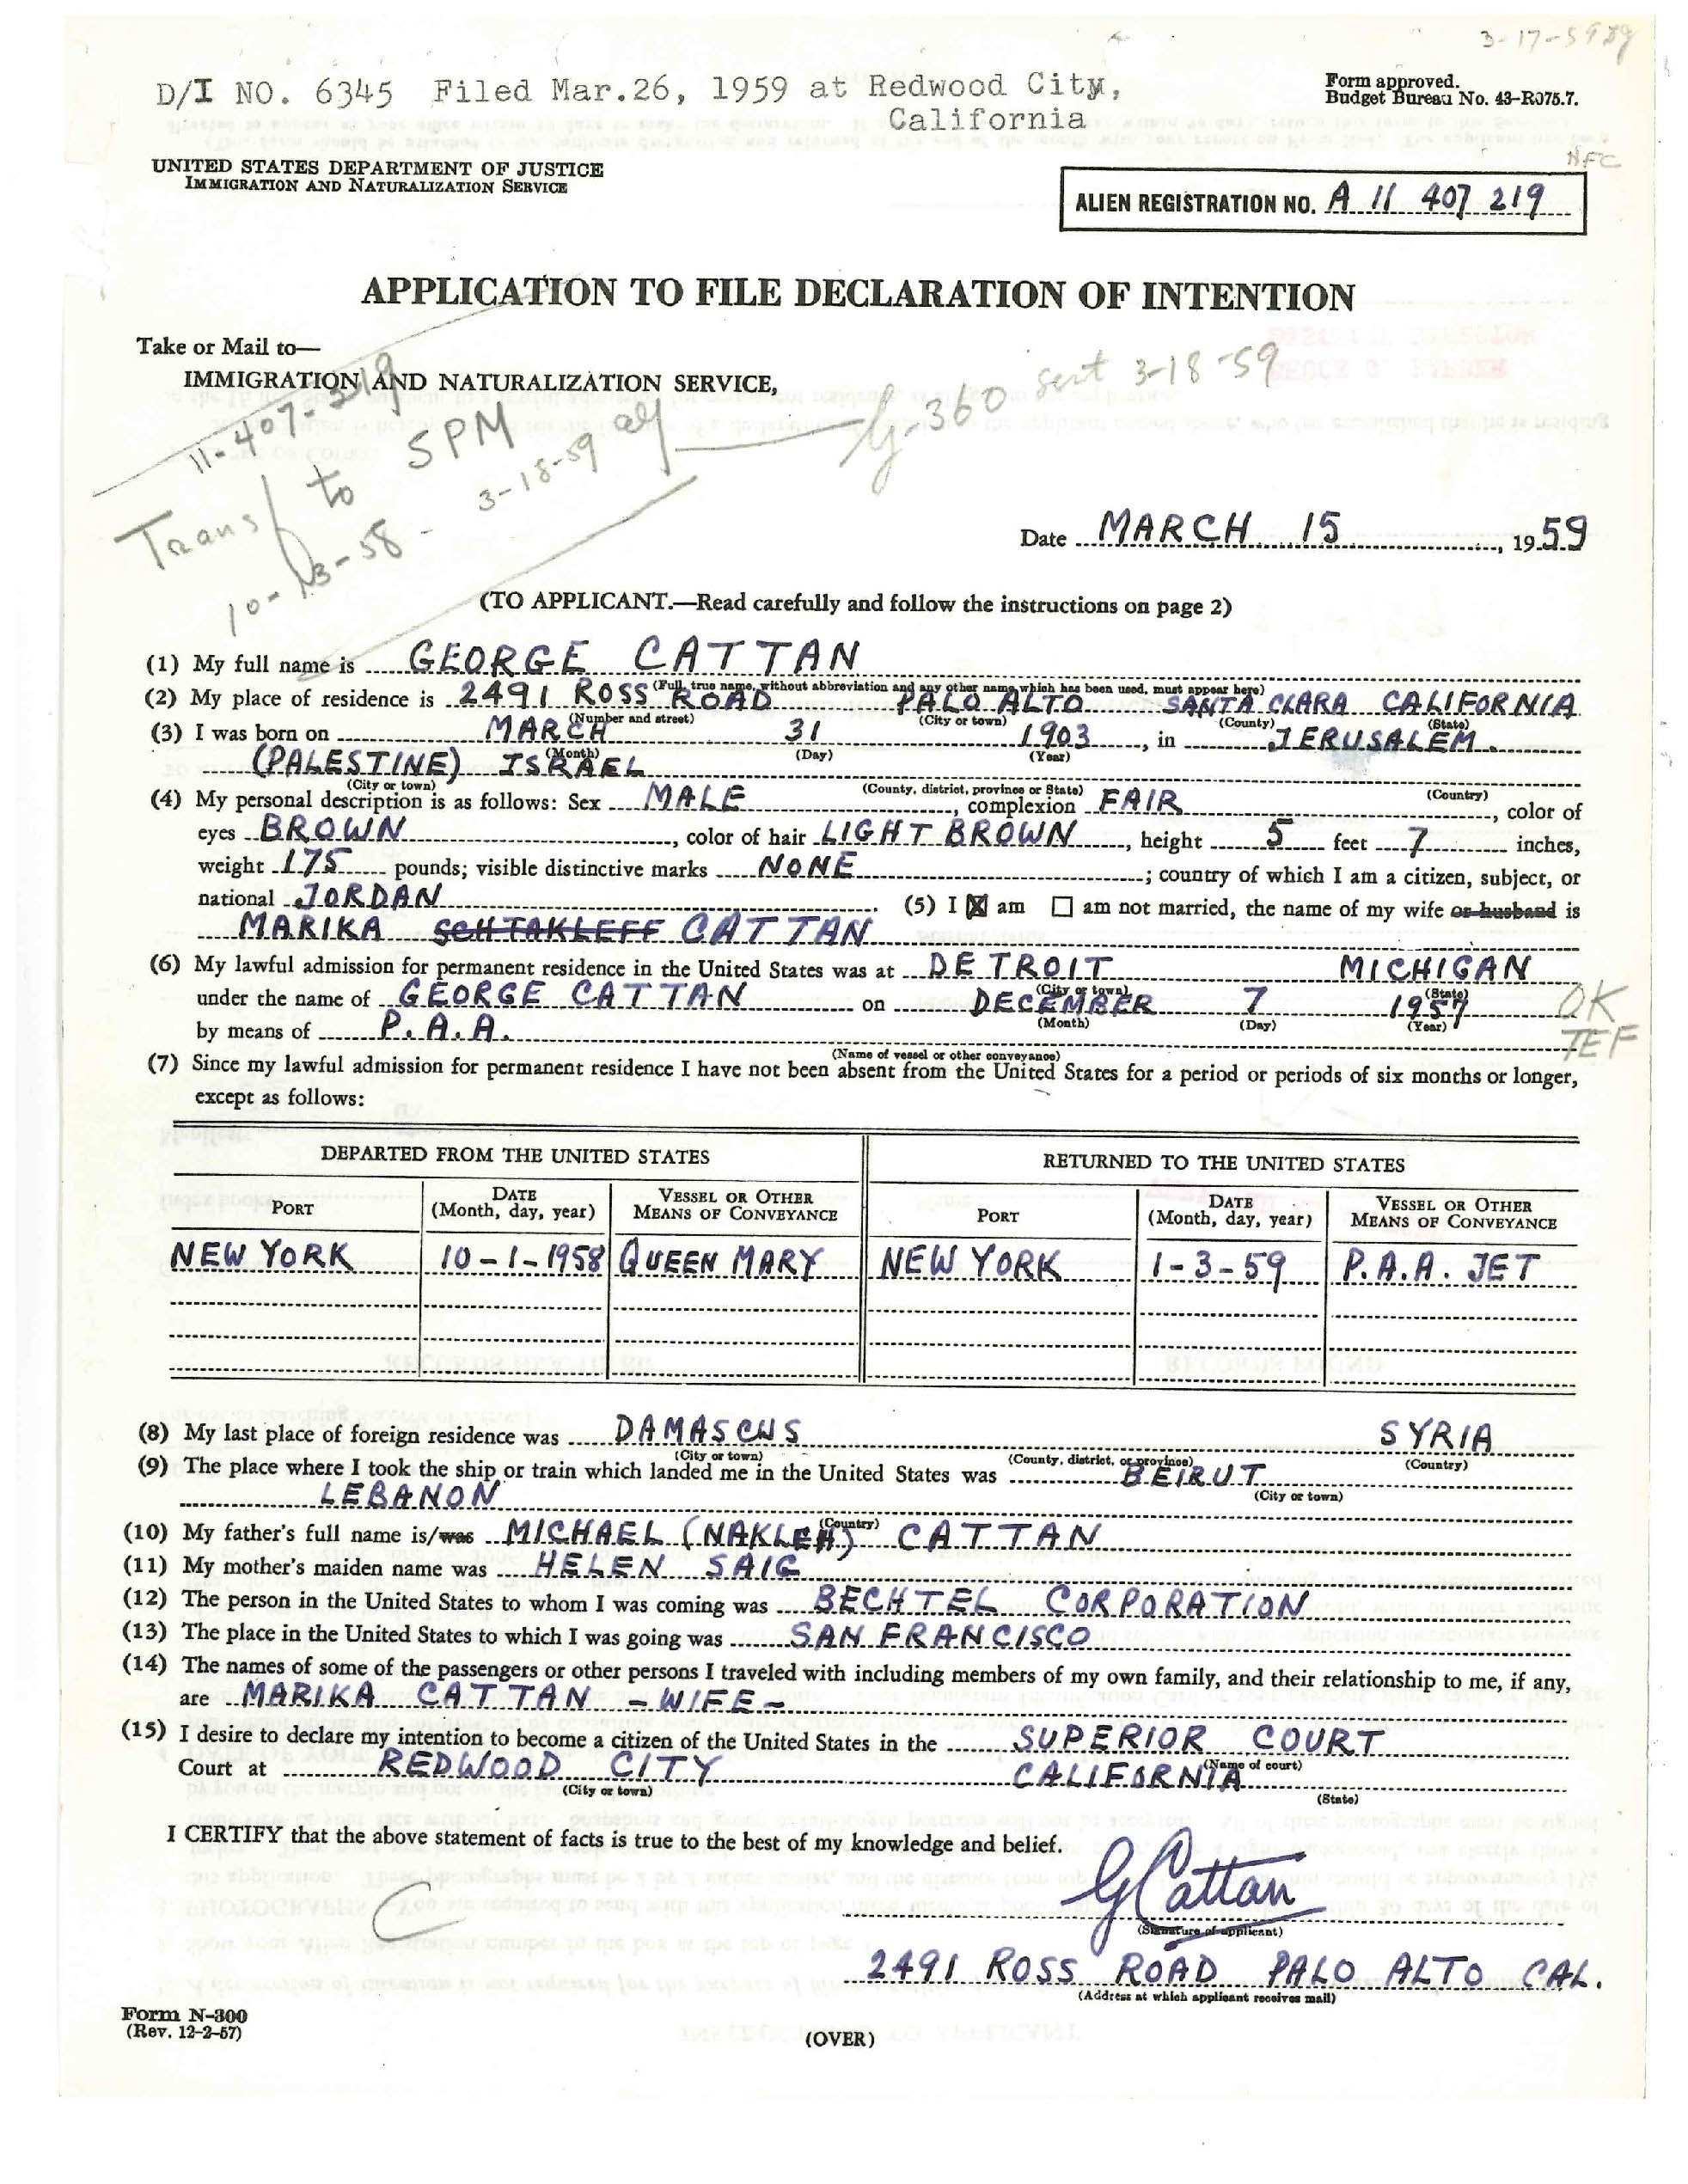 3-17-59
D/I NO. 6345 Filed Mar.26, 1959 at Redwood City,
California
Form approved.
Budget Bureau No. 43-R075.7.
NFC
UNITED STATES DEPARTMENT OF JUSTICE
IMMIGRATION AND NATURALIZATION SERVICE
ALIEN REGISTRATION NO. A 11 407 219
APPLICATION TO FILE DECLARATION OF INTENTION
Take or Mail to—
IMMIGRATION AND NATURALIZATION SERVICE,
11-407-219
Transf to SPM
10-13-58 - 3-18-59
G-360 sent 3-18-59
Date MARCH 15, 1959
(TO APPLICANT.—Read carefully and follow the instructions on page 2)
(1) My full name is GEORGE CATTAN
(Full, true name, without abbreviation and any other name which has been used, must appear here)
(2) My place of residence is 2491 ROSS ROAD PALO ALTO SANTA CLARA CALIFORNIA
(Number and street) (City or town) (County) (State)
(3) I was born on MARCH 31 1903, in JERUSALEM.
(Month) (Day) (Year)
(PALESTINE) ISRAEL
(City or town) (County, district, province or State) (Country)
(4) My personal description is as follows: Sex MALE, complexion FAIR, color of
eyes BROWN, color of hair LIGHT BROWN, height 5 feet 7 inches,
weight 175 pounds; visible distinctive marks NONE; country of which I am a citizen, subject, or
national JORDAN. (5) I ☒ am ☐ am not married, the name of my wife or husband is
MARIKA SCHTAKLEFF CATTAN
(6) My lawful admission for permanent residence in the United States was at DETROIT MICHIGAN
(City or town) (State)
under the name of GEORGE CATTAN on DECEMBER 7 1957
(Month) (Day) (Year)
OK
TEF
by means of P.A.A.
(Name of vessel or other conveyance)
(7) Since my lawful admission for permanent residence I have not been absent from the United States for a period or periods of six months or longer,
except as follows:
DEPARTED FROM THE UNITED STATES RETURNED TO THE UNITED STATES
PORT DATE (Month, day, year) VESSEL OR OTHER MEANS OF CONVEYANCE PORT DATE (Month, day, year) VESSEL OR OTHER MEANS OF CONVEYANCE
NEW YORK 10-1-1958 QUEEN MARY NEW YORK 1-3-59 P.A.A. JET
(8) My last place of foreign residence was DAMASCUS SYRIA
(City or town) (County, district, or province) (Country)
(9) The place where I took the ship or train which landed me in the United States was BEIRUT
(City or town)
LEBANON
(Country)
(10) My father's full name is/was MICHAEL (NAKLEH) CATTAN
(11) My mother's maiden name was HELEN SAIG
(12) The person in the United States to whom I was coming was BECHTEL CORPORATION
(13) The place in the United States to which I was going was SAN FRANCISCO
(14) The names of some of the passengers or other persons I traveled with including members of my own family, and their relationship to me, if any,
are MARIKA CATTAN - WIFE -
(15) I desire to declare my intention to become a citizen of the United States in the SUPERIOR COURT
(Name of court)
Court at REDWOOD CITY CALIFORNIA
(City or town) (State)
I CERTIFY that the above statement of facts is true to the best of my knowledge and belief.
G Cattan
(Signature of applicant)
2491 ROSS ROAD PALO ALTO CAL.
(Address at which applicant receives mail)
Form N-300
(Rev. 12-2-57)
(OVER)